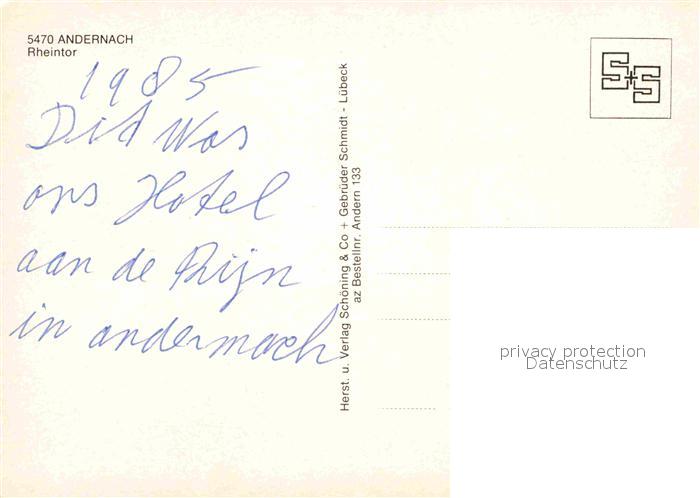 5470 ANDERNACH
Rheintor
1985
Dit Was
ons Hotel
aan de Rijn
in andermach
Herst. u. Verlag Schöning & Co + Gebrüder Schmidt - Lübeck
az Bestellnr. Andern 133
S+S
privacy protection
Datenschutz